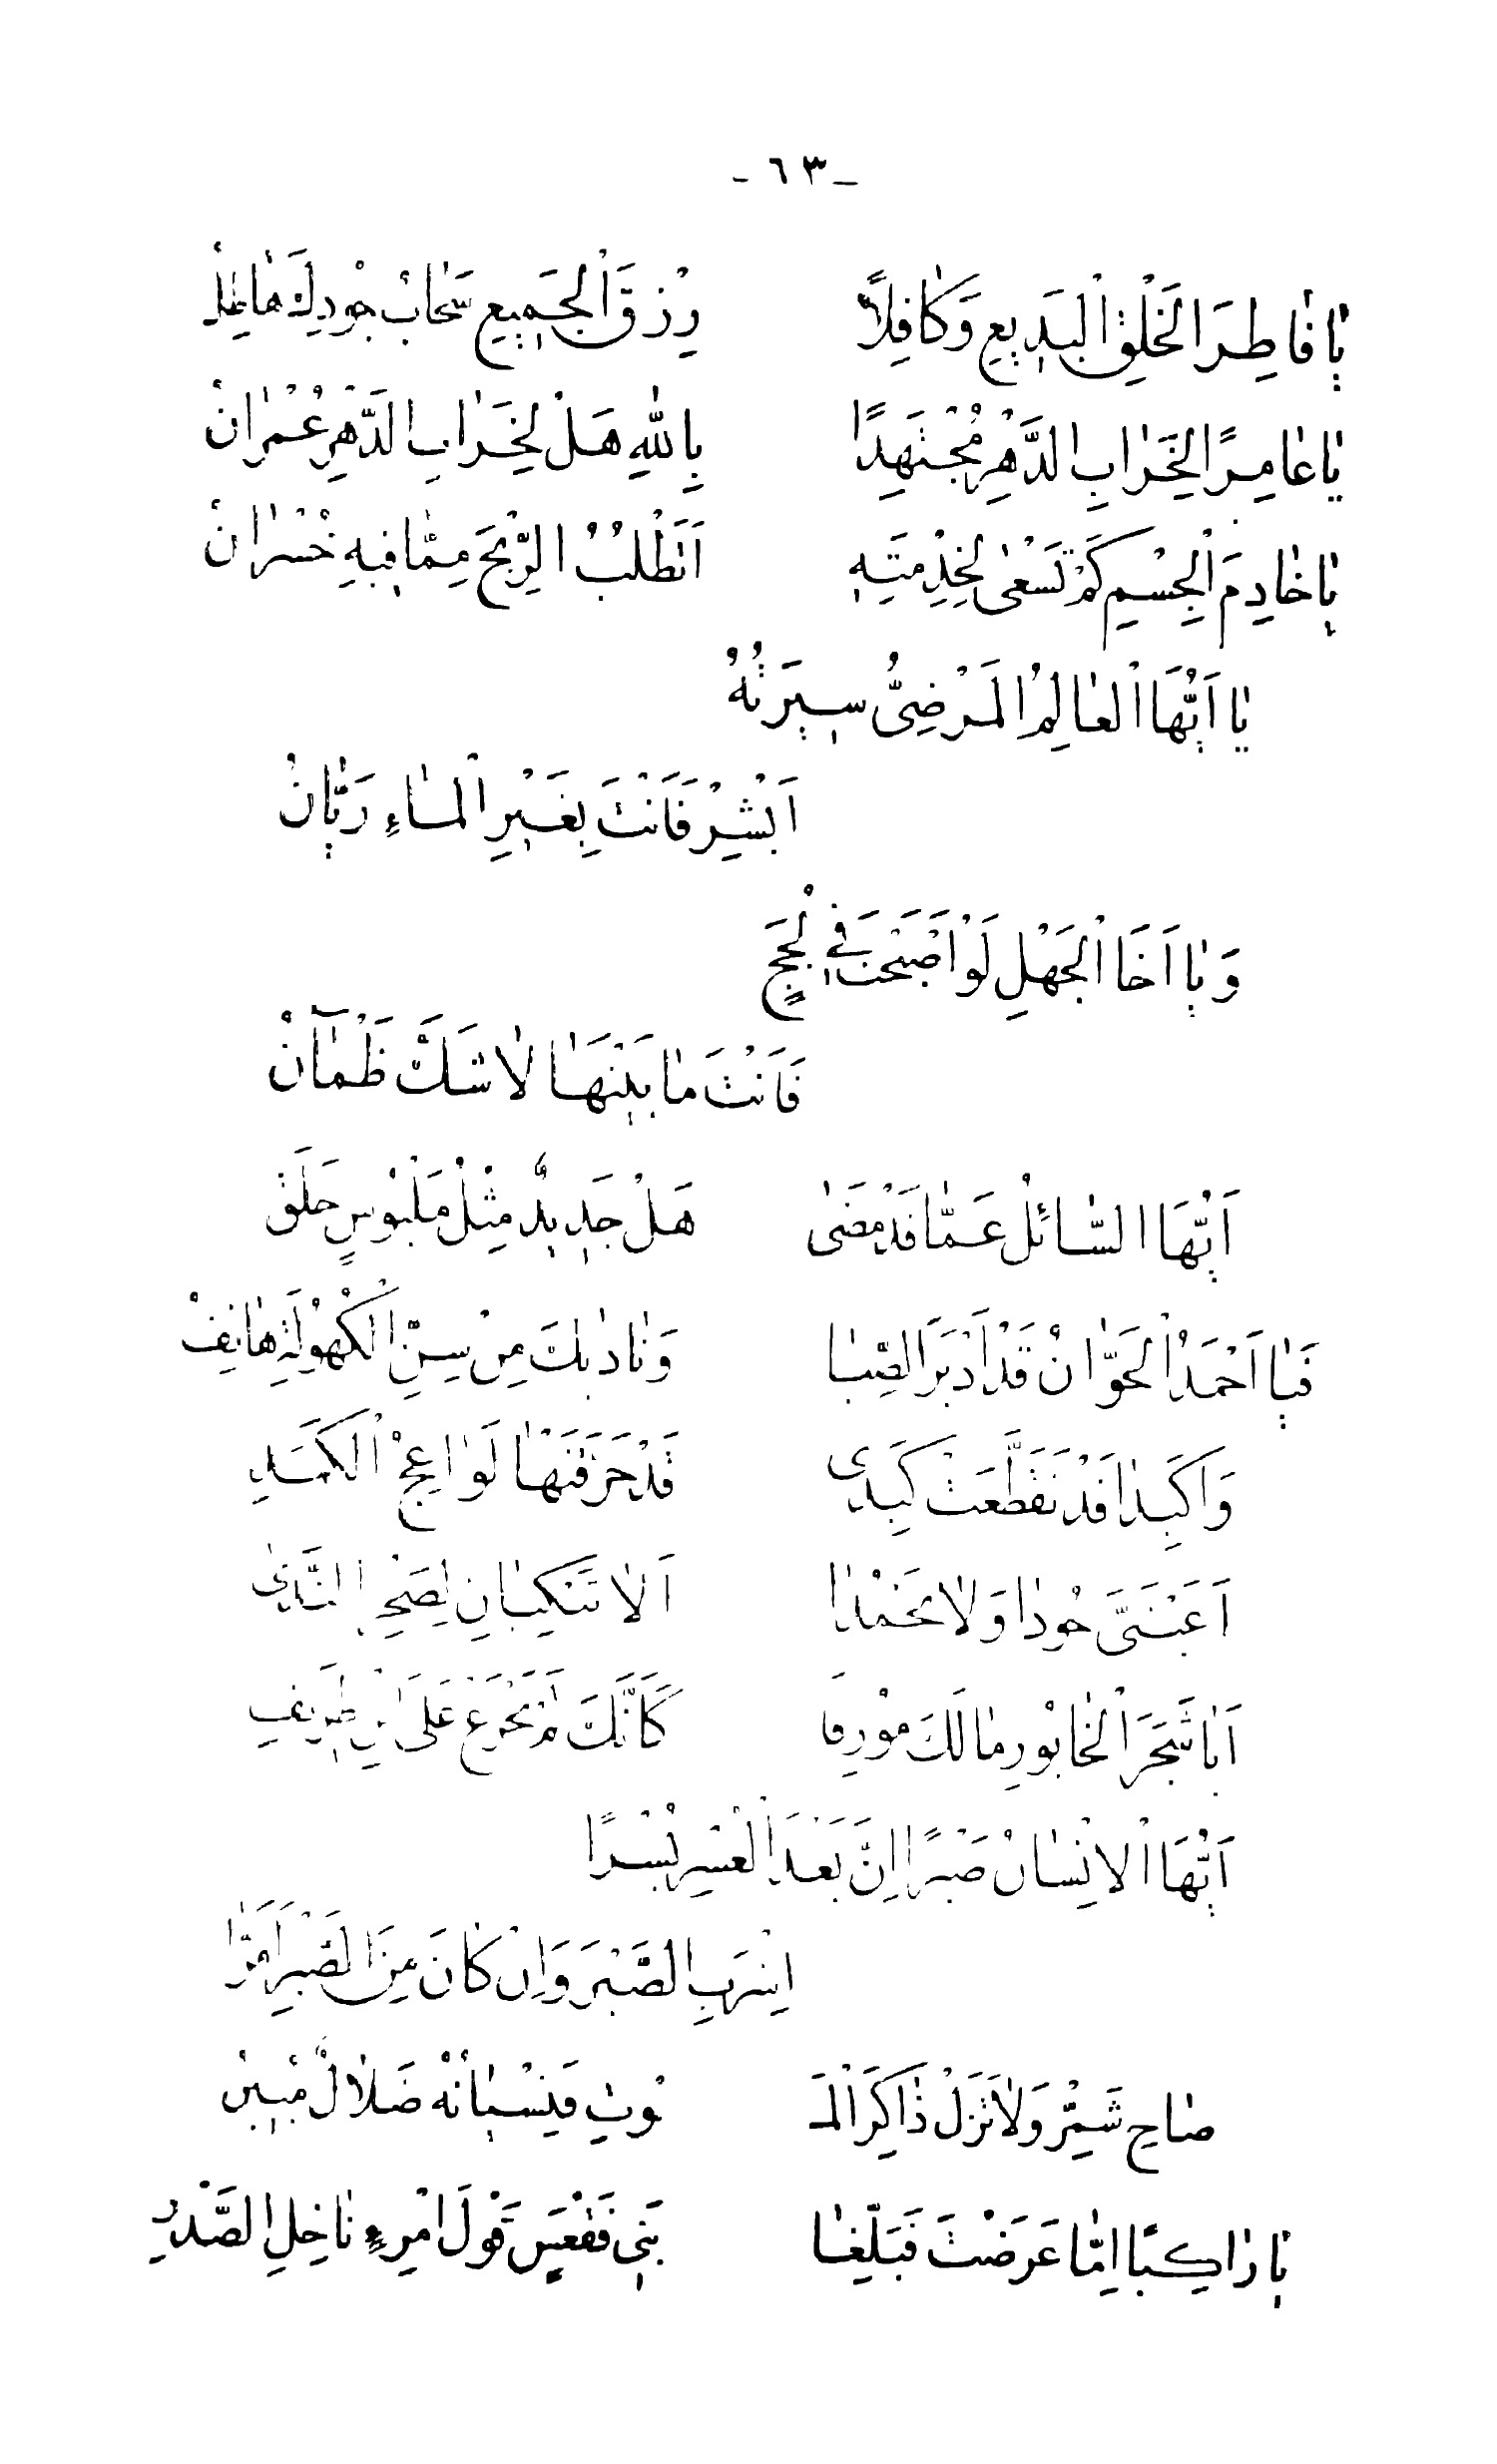 - ٦٣ -
يَا فَاطِرَ الْخَلْقِ الْبَدِيعِ وَكَافِلًا    رِزْقَ الْجَمِيعِ سَحَابُ جُودِكَ هَاطِلُ
يَا عَامِرًا لِخَرَابِ الدَّهْرِ مُجْتَهِدًا    بِاللهِ هَلْ لِخَرَابِ الدَّهْرِ عُمْرَانُ
يَا خَادِمَ الْجِسْمِ كَمْ تَسْعَى لِخِدْمَتِهِ    اَتَطْلُبُ الرِّبْحَ مِمَّا فِيهِ خُسْرَانُ
يَا اَيُّهَا الْعَالِمُ الْمَرْضِيُّ سِيرَتُهُ
اَبْشِرْ فَاَنْتَ بِغَيْرِ الْمَاءِ رَيَّانُ
وَيَا اَخَا الْجَهْلِ لَوْ اَصْبَحْتَ فِي لُجَجٍ
فَاَنْتَ مَا بَيْنَهَا لَا شَكَّ ظَمْآنُ
اَيُّهَا السَّائِلُ عَمَّا قَدْ مَضَى    هَلْ جَدِيدٌ مِثْلُ مَلْبُوسٍ خَلَقْ
فَيَا اَحْمَدُ الْحَوَّانُ قَدْ اَدْبَرَ الصِّبَا    وَنَادَيْكَ مِنْ سِنِّ الْكُهُولَةِ هَاتِفْ
وَاكَبِدَا قَدْ تَقَطَّعَتْ كَبِدِي    قَدْ حَرَّقَتْهَا لَوَاعِجُ الْكَمَدِ
اَعَيْنَيَّ جُودَا وَلَا تَجْمُدَا    اَلَا تَبْكِيَانِ لِصَخْرِ النَّدَى
اَيَا شَجَرَ الْخَابُورِ مَا لَكَ مُورِقًا    كَاَنَّكَ لَمْ تَجْزَعْ عَلَى ابْنِ طَرِيفِ
اَيُّهَا الْاِنْسَانُ صَبْرًا اِنَّ بَعْدَ الْعُسْرِ يُسْرًا
اِشْرَبِ الصَّبْرَ وَاِنْ كَانَ مِنَ الصَّبْرِ اَمَرَّا
صَاحِ شَمِّرْ وَلَا تَزَلْ ذَاكِرَ الْمَـ    ـوْتِ فَنِسْيَانُهُ ضَلَالٌ مُبِينُ
يَا رَاكِبًا اِمَّا عَرَضْتَ فَبَلِّغَا    بَنِي فَقْعَسٍ قَوْلَ امْرِءٍ نَاخِلِ الصَّدْرِ